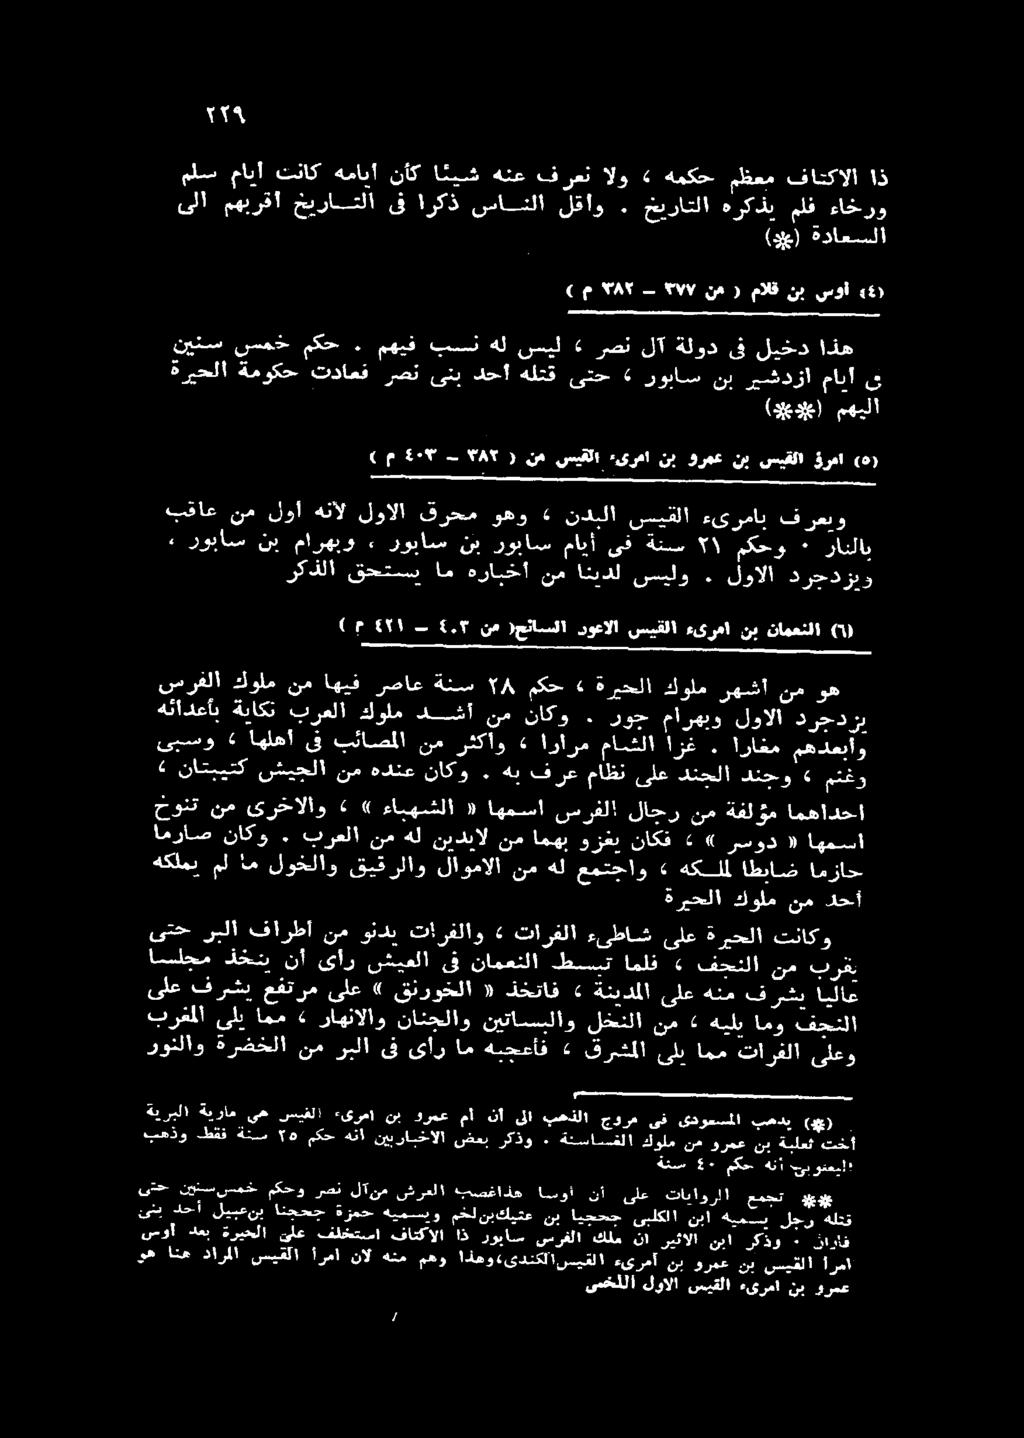 ٢٢٩
ذا الاكتاف معظم حكمه ، ولا نعرف عنه شيئا كأن أيامه كانت أيام سلم
ورخاء فلم يذكره التاريخ . وأقل النــاس ذكرا فى التــاريخ أقربهم الى
السعادة (*)
(٤) أوس بن قلام ( من ٣٧٧ – ٣٨٢ م )
هذا دخيل فى دولة آل نصر ، ليس له نسب فيهم . حكم خمس سنين
فى أيام ازدشير بن سابور ، حتى قتله أحد بنى نصر فعادت حكومة الحيرة
اليهم (**)
(٥) امرؤ القيس بن عمرو بن امرىء القيس من ( ٣٨٢ – ٤٠٣ م )
ويعرف بامرىء القيس البدن ، وهو محرق الاول لأنه أول من عاقب
بالنار . وحكم ٢١ سنة فى أيام سابور بن سابور ، وبهرام بن سابور ،
ويزدجرد الاول . وليس لدينا من أخباره ما يستحق الذكر
(٦) النعمان بن امرىء القيس الاعور السائح( من ٤٠٣ – ٤٢١ م )
هو من أشهر ملوك الحيرة ، حكم ٢٨ سنة عاصر فيها من ملوك الفرس
يزدجرد الاول وبهرام جور . وكان من أشــد ملوك العرب نكاية بأعدائه
وأبعدهم مغارا . غزا الشام مرارا ، وأكثر من المصائب فى أهلها ، وسبى
وغنم ، وجند الجند على نظام عرف به . وكان عنده من الجيش كتيبتان ،
احداهما مؤلفة من رجال الفرس اسمها « الشهباء » ، والاخرى من تنوخ
اسمها « دوسر » ، فكان يغزو بهما من لايدين له من العرب . وكان صارما
حازما ضابطا لملــكه ، واجتمع له من الاموال والرقيق والخول ما لم يملكه
أحد من ملوك الحيرة
وكانت الحيرة على شاطىء الفرات ، والفرات يدنو من أطراف البر حتى
يقرب من النجف ، فلما تبسـط النعمان فى العيش رأى أن يتخذ مجلسـا
عاليا يشرف منه على المدينة ، فاتخذ « الخورنق » على مرتفع يشرف على
النجف وما يليه ، من النخل والبساتين والجنان والانهار ، مما يلى المغرب
وعلى الفرات مما يلى المشرق ، فأعجبه ما رأى فى البر من الخضرة والنور
(*) يذهب المسعودى فى مروج الذهب الى أن أم عمرو بن امرىء القيس هى مارية البرية
أخت ثعلبة بن عمرو من ملوك الغساسنة . وذكر بعض الاخباريين أنه حكم ٢٥ سنة فقط وذهب
اليعقوبى أنه حكم ٤٠ سنة
** تجمع الروايات على أن أوسا هذاغصب العرش منآل نصر وحكم خمسسنين حتى
قتله رجل يسميه ابن الكلبى جحجبا بن عتيكبنلخم ويسميه حمزة جحجنا بنعبيل أحد بنى
فاران . وذكر ابن الاثير ان ملك الفرس سابور ذا الاكتاف استخلف على الحيرة بعد أوس
امرأ القيس بن عمرو بن امرىء القيسالكندى،وهذا وهم منه لان امرأ القيس المراد هنا هو
عمرو بن امرىء القيس الاول اللخمى